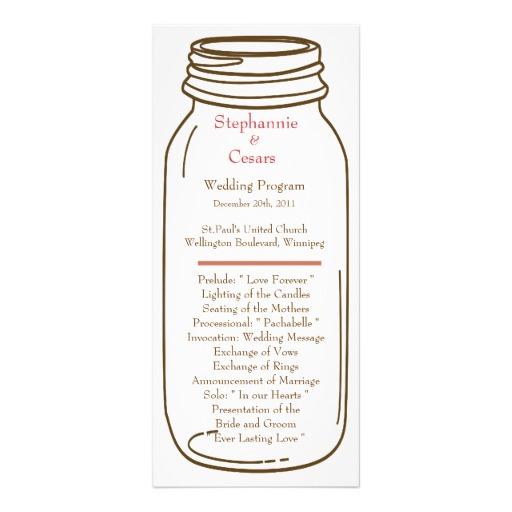 Stephannie
&
Cesars
Wedding Program
December 20th, 2011
St.Paul's United Church
Wellington Boulevard, Winnipeg
Prelude: " Love Forever "
Lighting of the Candles
Seating of the Mothers
Processional: " Pachabelle "
Invocation: Wedding Message
Exchange of Vows
Exchange of Rings
Announcement of Marriage
Solo: " In our Hearts "
Presentation of the
Bride and Groom
" Ever Lasting Love "